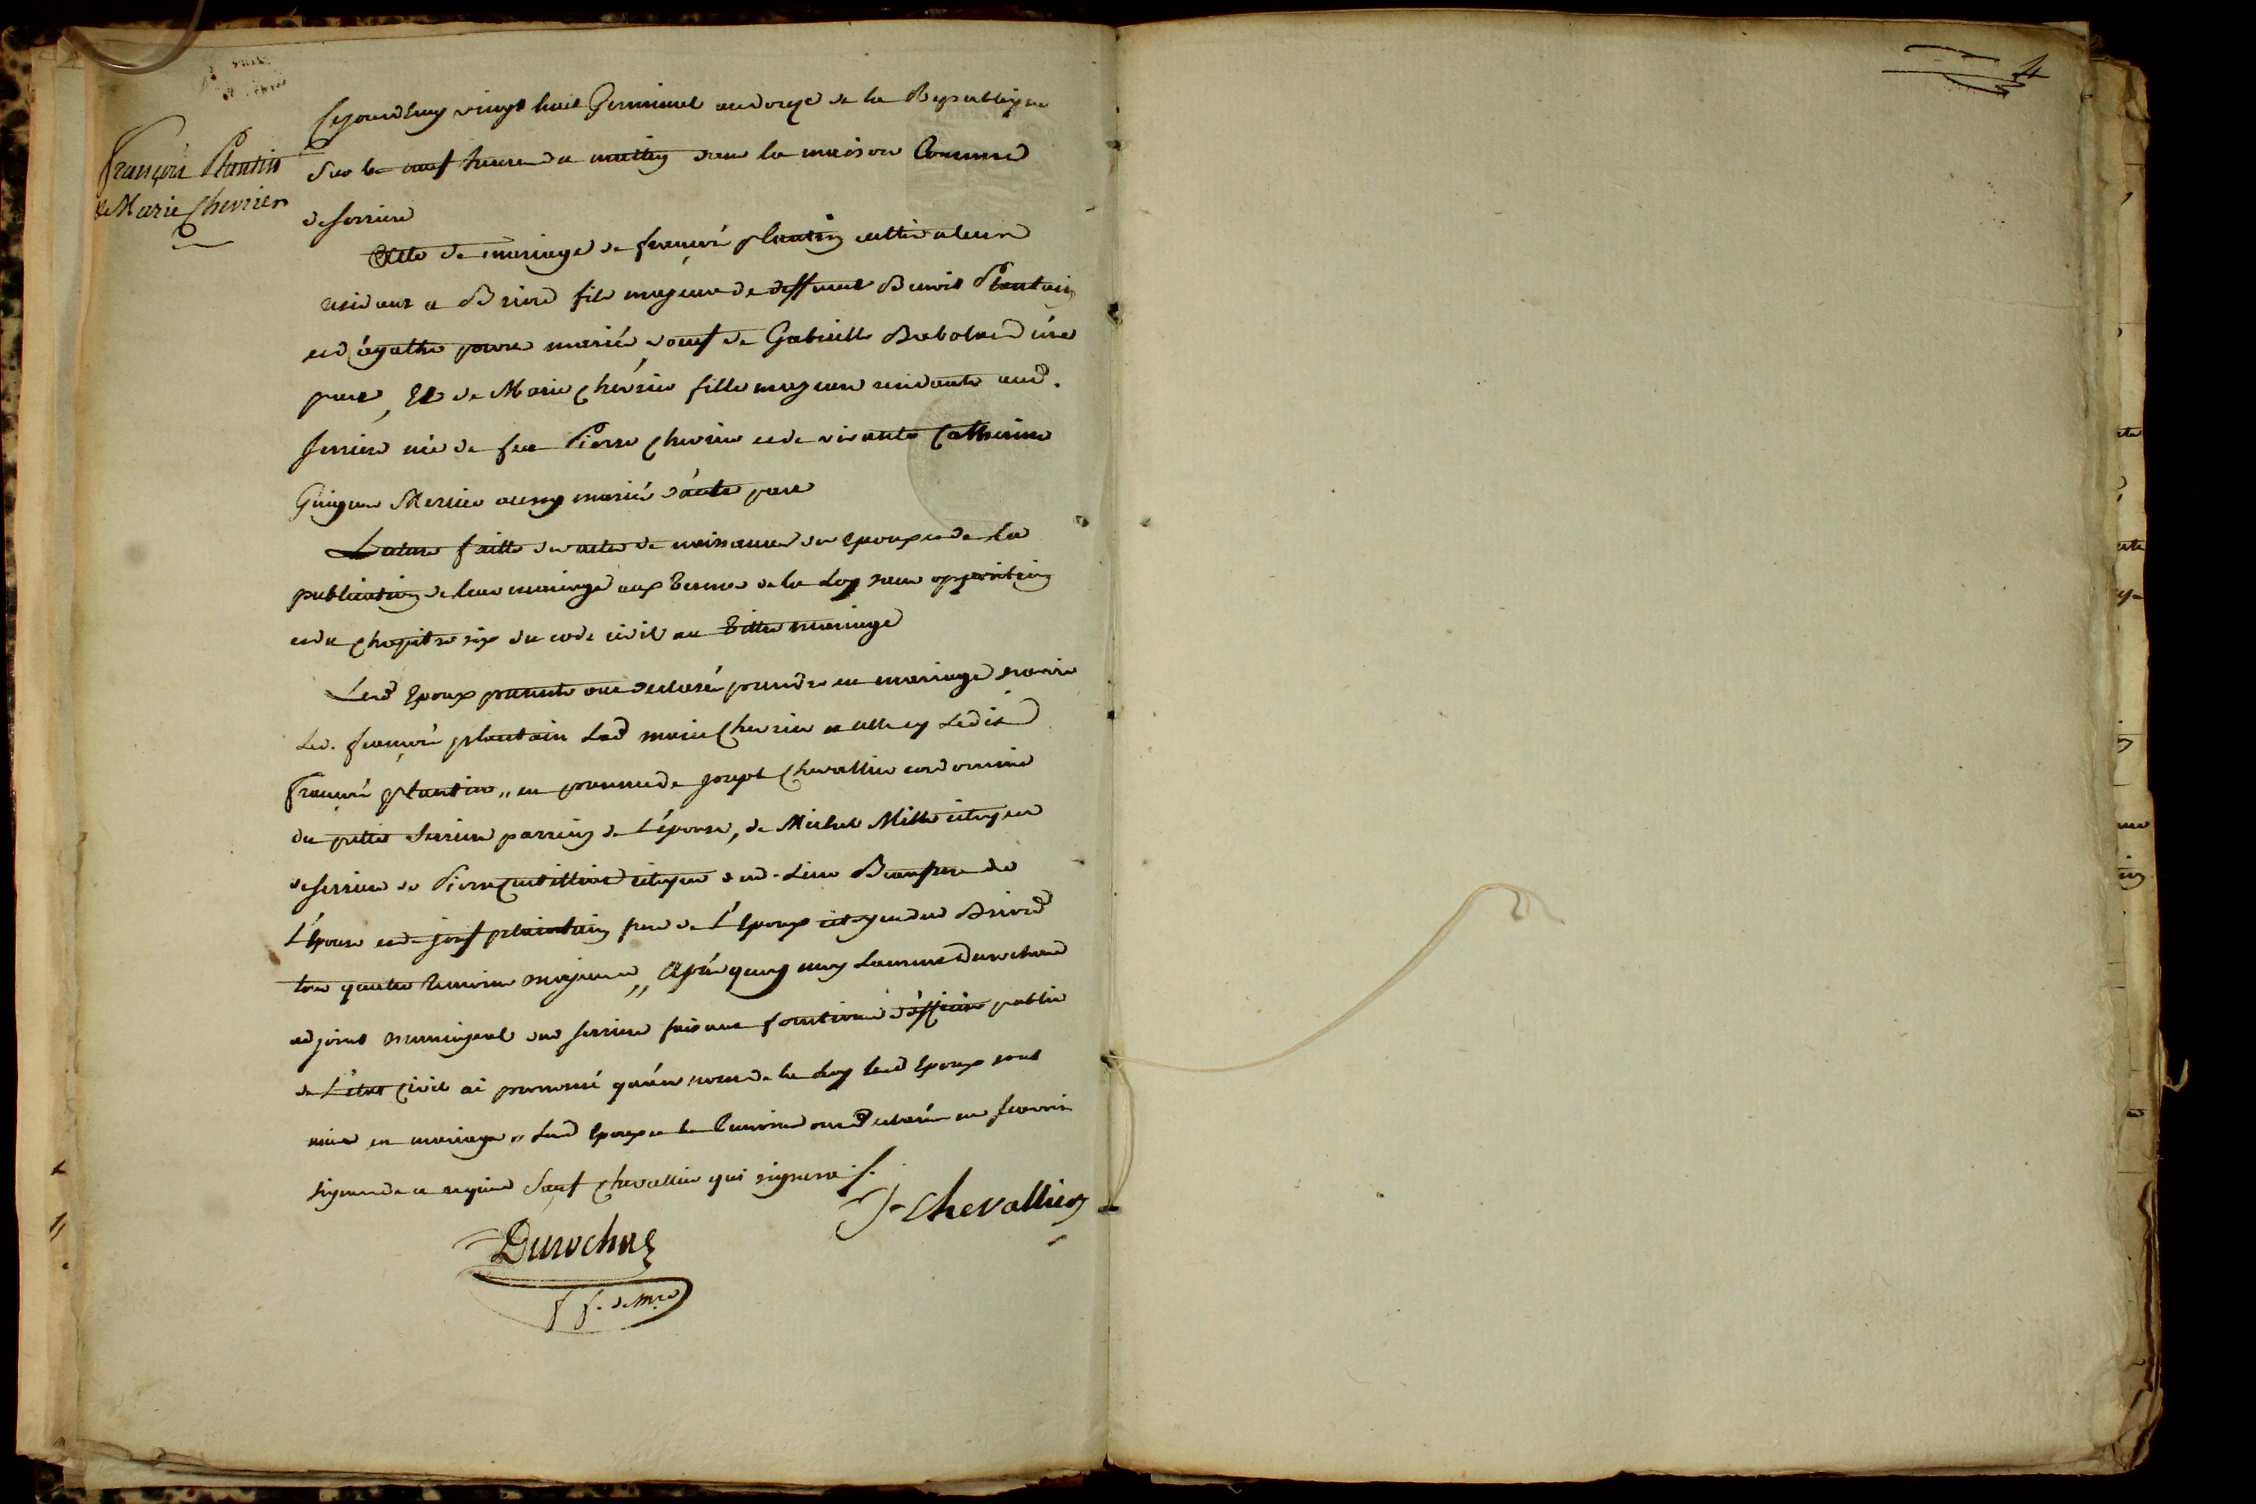 4
François Plantin
& Marie Chevrier
Cejourdhuy vingt huit Germinal an douze de la Republique
sur les neuf heures du mattin dans la maison Commune
de serriere
Acte de mariage de françois plantin cultivateur
residant a Briord fils majeur de deffunt Benoit Plantain
et d'ágathe mariés veuf de Gabrielle d'une
part, Et de Marie Chevrier fille majeure residante aud.
serriere née de feu Pierre Chevrier et de vivante Catherine
Guigue Mercier aussy mariés d'áutre part
Lecture faitte des actes de naissance des epoux et de la
publication de leur mariage aux termes de la Loy sans opposition
et du chapitre six du code civil au Titre mariage
Lesd Epoux presents ont declaré prendre en mariage savoir
Led. françois plantain Lad marie Chevrier et elle ledit
françois plantin,, en presence de joseph Chevallier cordonnier
du petit Serriere parrein de L'épouse, de Michel Mille citoyen
de serriere de Pierre citoyen dud. Lieu Beaufrere de
L'épouse et de plaintain frere de L'Epoux citoyen de Briord
tous quatre temoins majeurs,, Après quoy moy Durochat
adjoint municipal de serriere faisant fonctions d'officier public
de L'état civil ai prononcé qu'au nom de la Loy lesd Epoux sont
unis en mariage,, Lesd Epoux et les temoins ont declarés ne savoir
signer de ce requis sauf Chevallier qui signera ./.
J. chevallier
Durochat
f f. de m.re